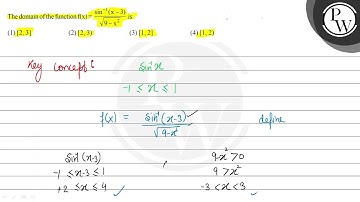 The domain of the function f(x) = sin⁻¹(x − 3) / √(9 − x²) is
(1) [2, 3] (2) [2, 3) (3) [1, 2] (4) [1, 2)
PW
Key concept :
sin⁻¹x
-1 ≤ x ≤ 1
f(x) = sin⁻¹(x-3) / √(9-x²) define
sin⁻¹(x-3) , 9-x² > 0
-1 ≤ x-3 ≤ 1 9 > x²
+2 ≤ x ≤ 4 ✓ -3 < x < 3 ✓